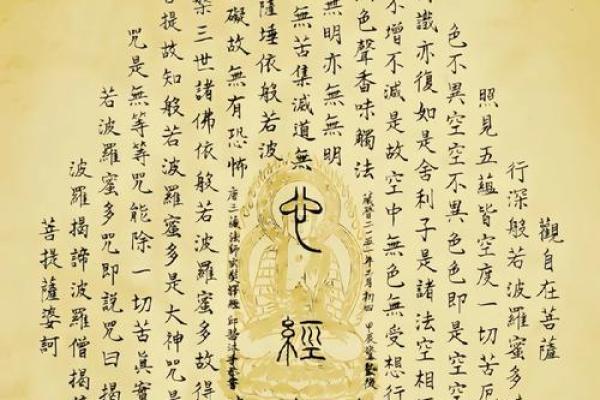 觀自在菩薩
行深般若波羅蜜多
照見五蘊皆空度一切苦厄
色不異空空不異色色即是空空
識亦復如是舍利子是諸法空相
不增不減是故空中無色無受想行
色聲香味觸法
無明亦無無明
無苦集滅道無
心經
薩埵依般若波
礙故無有恐怖
唐三藏法師玄奘譯
槃三世諸佛依般若波羅蜜多故得
菩提故知般若波羅蜜多是大神咒是
咒是無等等咒能除一切苦眞實
若波羅蜜多咒即說咒曰揭
波羅揭諦波羅僧揭
菩提薩婆訶